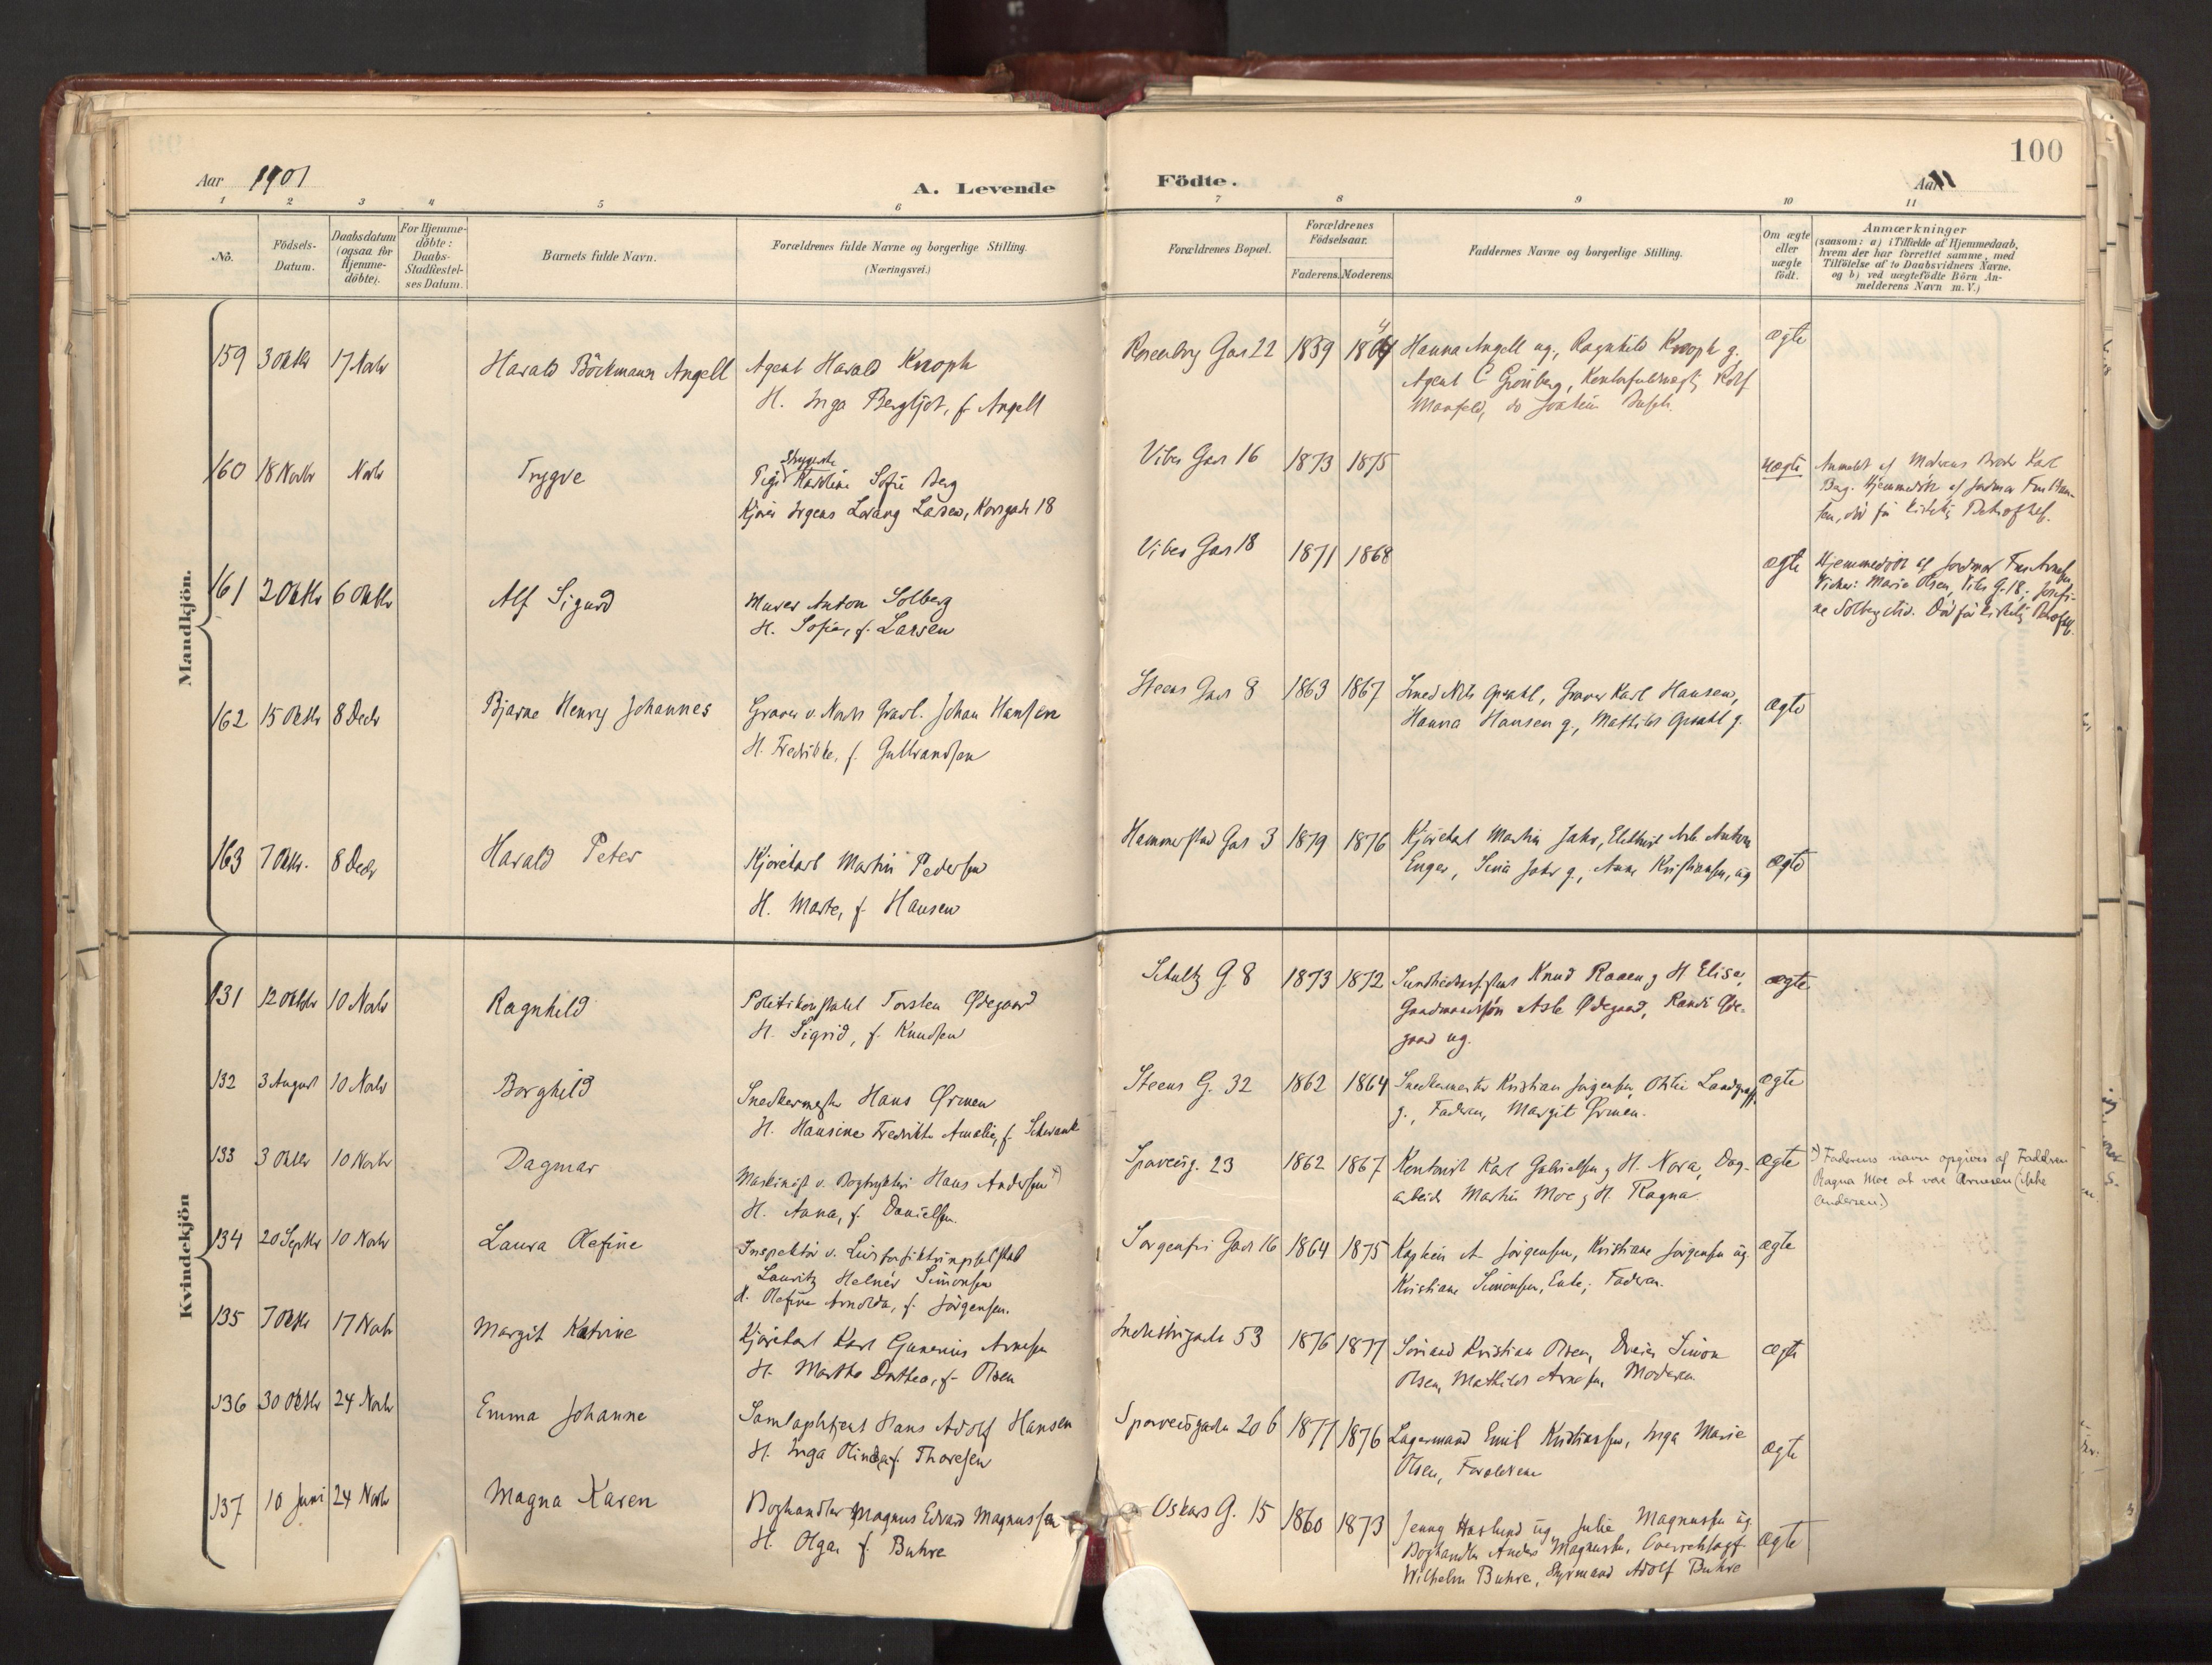 100
Aar 1901
A. Levende
Födte.
Aar
1 2 3 4 5 6 7 8 9 10 11
No.
Födsels-
Datum.
Daabsdatum
(ogsaa for
Hjemme-
döbte).
For Hjemme-
döbte:
Daabs-
Stadfæstel-
ses Datum.
Barnets fulde Navn.
Forældrenes fulde Navne og borgerlige Stilling.
(Næringsvei.)
Forældrenes Bopæl.
Forældrenes
Födselsaar.
Faderens. Moderens.
Faddernes Navne og borgerlige Stilling.
Om ægte
eller
uægte
födt.
Anmærkninger
(saasom: a) i Tilfælde af Hjemmedaab,
hvem der har forrettet samme, med
Tilföielse af to Daabsvidners Navne.
og b) ved uægtefödte Börn An-
melderens Navn m.V.)
Mandkjön.
159 3 Oktbr 17 Novbr Harald Böckmann Angell Agent Harald Knoph
H. Inga Bergljot, f. Angell
Rosenborg Gad 22 1859 1864 Hanna Angell ug., Ragnhild Knoph g.
Agent C Grönberg, Kontorfuldmægtig Rolf
ægte
160 18 Novbr Novbr Trygve
Pige Karoline Sofie Berg
Kjører Larsen, Korsgade 18
Vibes Gade 16 1873 1875 uægte
Anmeldt af Moderens Broder Karl
Berg. Hjemmedöbt af Jordmor Fru Han-
sen, död för kirkelig
161 2 Oktbr 6 Oktbr Alf Sigurd Murer Anton Solberg
H. Sofie, f. Larsen
Vibes Gade 18 1871 1868 ægte
Hjemmedöbt af Jordmor Fru Arnesen
Vidner: Marie Olsen, Vibes G. 18; Josefi-
ne Solberg Död før kirkelig
162 15 Oktbr 8 Decbr Bjarne Henry Johannes Graver v. Nordre Gravl. Johan Hansen
H. Fredrikke, f. Gulbrandsen
Steens Gade 8 1863 1867 Smed Nils Graver Karl Hansen,
Hanna Hansen g., Mathilde g.
ægte
163 7 Oktbr. 8 Decbr Harald Peter Kjörekarl Martin Pedersen
H. Marte, f. Hansen
Hammerstad Gad 3 1879 1876 Kjörekarl Martin Jahr, Anton
Enger, Jahr g., Anna Kristiansen, ug
ægte
Kvindekjön
131 12 Oktbr 10 Novbr Ragnhild Politikonstabel Torsten Ødegaard
H. Sigrid, f. Knudsen
Schultz G. 8 1873 1872 Knud Raaen g H Elise,
Gaardmandssön Asle Ødegaard, Randi Øde-
gaard ug.
ægte
132 3 August 10 Novbr Borghild Snedkermester Hans Ørmen
H. Hansine Fredrikke Amalie, f. Schwank
Steens G. 32 1862 1864 Snedkermester Kristian Jörgensen, Othilie
g., Faderen, Margit Ørmen.
ægte
133 3 Oktbr 10 Novbr Dagmar Maskinist v. Bogtrykkeri Hans Andersen x)
H. Anna, f. Danielsen.
Sporveisg. 23 1862 1867 Kontorist Karl Gabrielsen g H. Nora, Dag-
arbeider Martin Moe g H. Ragna.
ægte
x) Faderens navn opgives af Fadderen
Ragna Moe at være Arnesen (ikke
Andersen.)
134 20 Septbr 10 Novbr Laura Olefine Inspektör v. Livsforsikringsselskab
Lauritz Helnèr Simonsen
H. Olefine Arnolda, f. Jörgensen.
Sorgenfri Gade 16 1864 1875 Kaptein A. Jörgensen, Kristiane Jörgensen ug.
Kristiane Simonsen, Enke; Faderen.
ægte
135 7 Oktbr 17 Novbr Margit Katrine Kjörekarl Karl Gunerius Arnesen
H. Marthe Dorthea, f. Olsen
Industrigade 53 1876 1877 Sömand Kristian Olsen, Dreier Simon
Olsen, Mathilde Arnesen, Moderen
ægte
136 30 Oktbr 24 Novbr Emma Johanne Hans Adolf Hansen
H. Inga Olinda f. Thoresen
Sporveisgaden 20 b 1877 1876 Lagermand Emil Kristiansen, Inga Marie
Olsen, Forældrene
ægte
137 10 Juni 24 Novbr Magna Karen Boghandler Magnus Edvard Magnussen
H. Olga, f. Buhre
Oskars G. 15 1860 1873 Jenny Haslund ug, Julie Magnussen ug
Boghandler Anders Magnussen,
Wilhelm Buhre, Styrmand Adolf Buhre
ægte